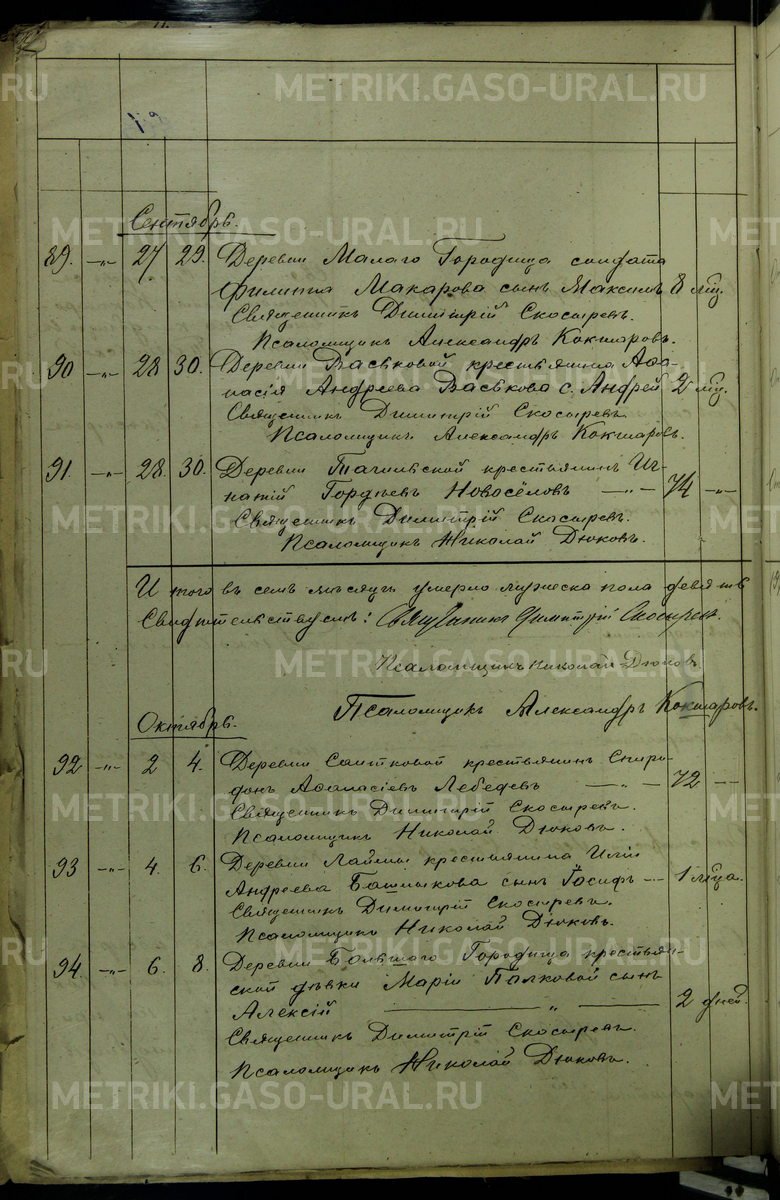 Сентябрь.
89. —„— 27 29. Деревни Малаго Городища солдата
Филиппа Макарова сынъ Максимъ 8 мц.
Священникъ Димитрій Скосыревъ.
Псаломщикъ Александръ Кокшаровъ.
90 —„— 28 30. Деревни Васьковой крестьянина Аѳа-
насія Андреева Васькова с. Андрей 2 мц.
Священникъ Димитрій Скосыревъ
Псаломщикъ Александръ Кокшаровъ.
91. —„— 28. 30. Деревни Тагильской крестьянинъ Иг-
натій Гордѣевъ Новосёловъ —„— 74 —„—
Священникъ Димитрій Скосыревъ.
Псаломщикъ Николай Дюковъ.
И того въ семъ мѣсяцѣ умерло мужеска пола девять
Свидѣтельствуемъ: Священникъ Димитрій Скосыревъ.
Псаломщикъ Николай Дюковъ
Псаломщикъ Александръ Кокшаровъ.
Октябрь.
92 —„— 2 4. Деревни крестьянинъ Спири-
донъ Аѳанасіевъ Лебедевъ —„— 72 —
Священникъ Димитрій Скосыревъ.
Псаломщикъ Николай Дюковъ.
93 —„— 4. 6. Деревни Лаймы крестьянина Иліи
Андреева Башлыкова сынъ Іосифъ — 1 мца.
Священникъ Димитрій Скосыревъ.
Псаломщикъ Николай Дюковъ.
94. —„— 6. 8. Деревни Большаго Городища крестьян-
ской дѣвки Маріи Палковой сынъ
Алексій —„— 2 дней.
Священникъ Димитрій Скосыревъ.
Псаломщикъ Николай Дюковъ.
METRIKI.GASO-URAL.RU